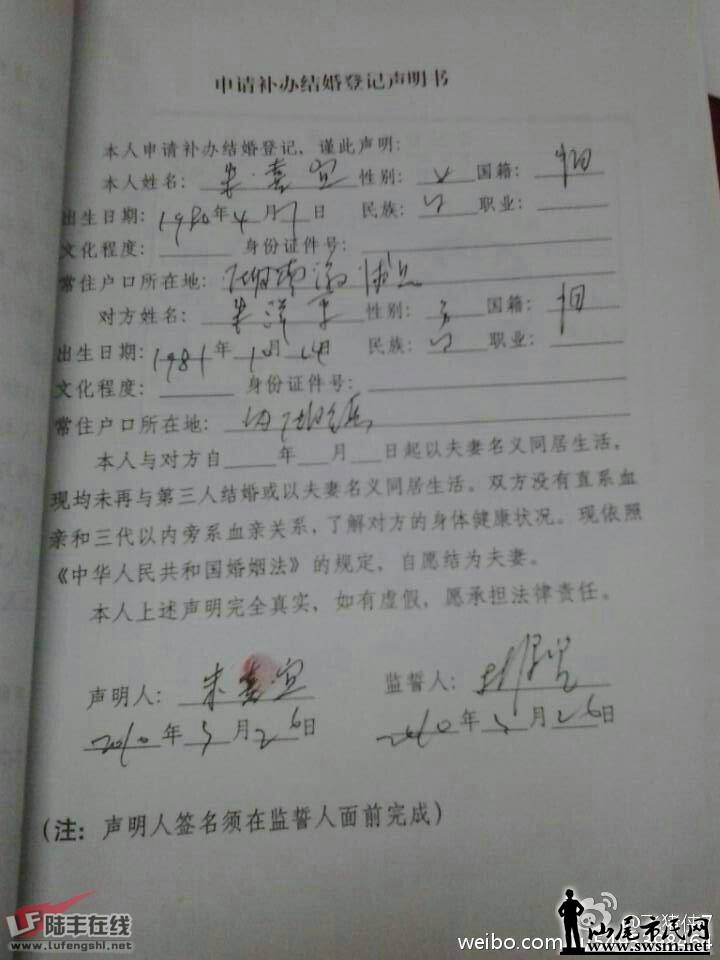 申请补办结婚登记声明书
本人申请补办结婚登记，谨此声明：
本人姓名：朱喜宜 性别：女 国籍：中国
出生日期：1980年4月7日 民族：汉 职业：
文化程度： 身份证件号：
常住户口所在地：湖南
对方姓名：朱泽 性别： 国籍：中国
出生日期：1981年10月14日 民族：汉 职业：
文化程度： 身份证件号：
常住户口所在地：
本人与对方自 年 月 日起以夫妻名义同居生活，
现均未再与第三人结婚或以夫妻名义同居生活。双方没有直系血
亲和三代以内旁系血亲关系，了解对方的身体健康状况。现依照
《中华人民共和国婚姻法》的规定，自愿结为夫妻。
本人上述声明完全真实，如有虚假，愿承担法律责任。
声明人：朱喜宜 监誓人：
2010年3月26日 2010年3月26日
（注：声明人签名须在监誓人面前完成）
LF 陆丰在线
www.lufengshi.net
weibo.com
汕尾市民网
www.swsm.net